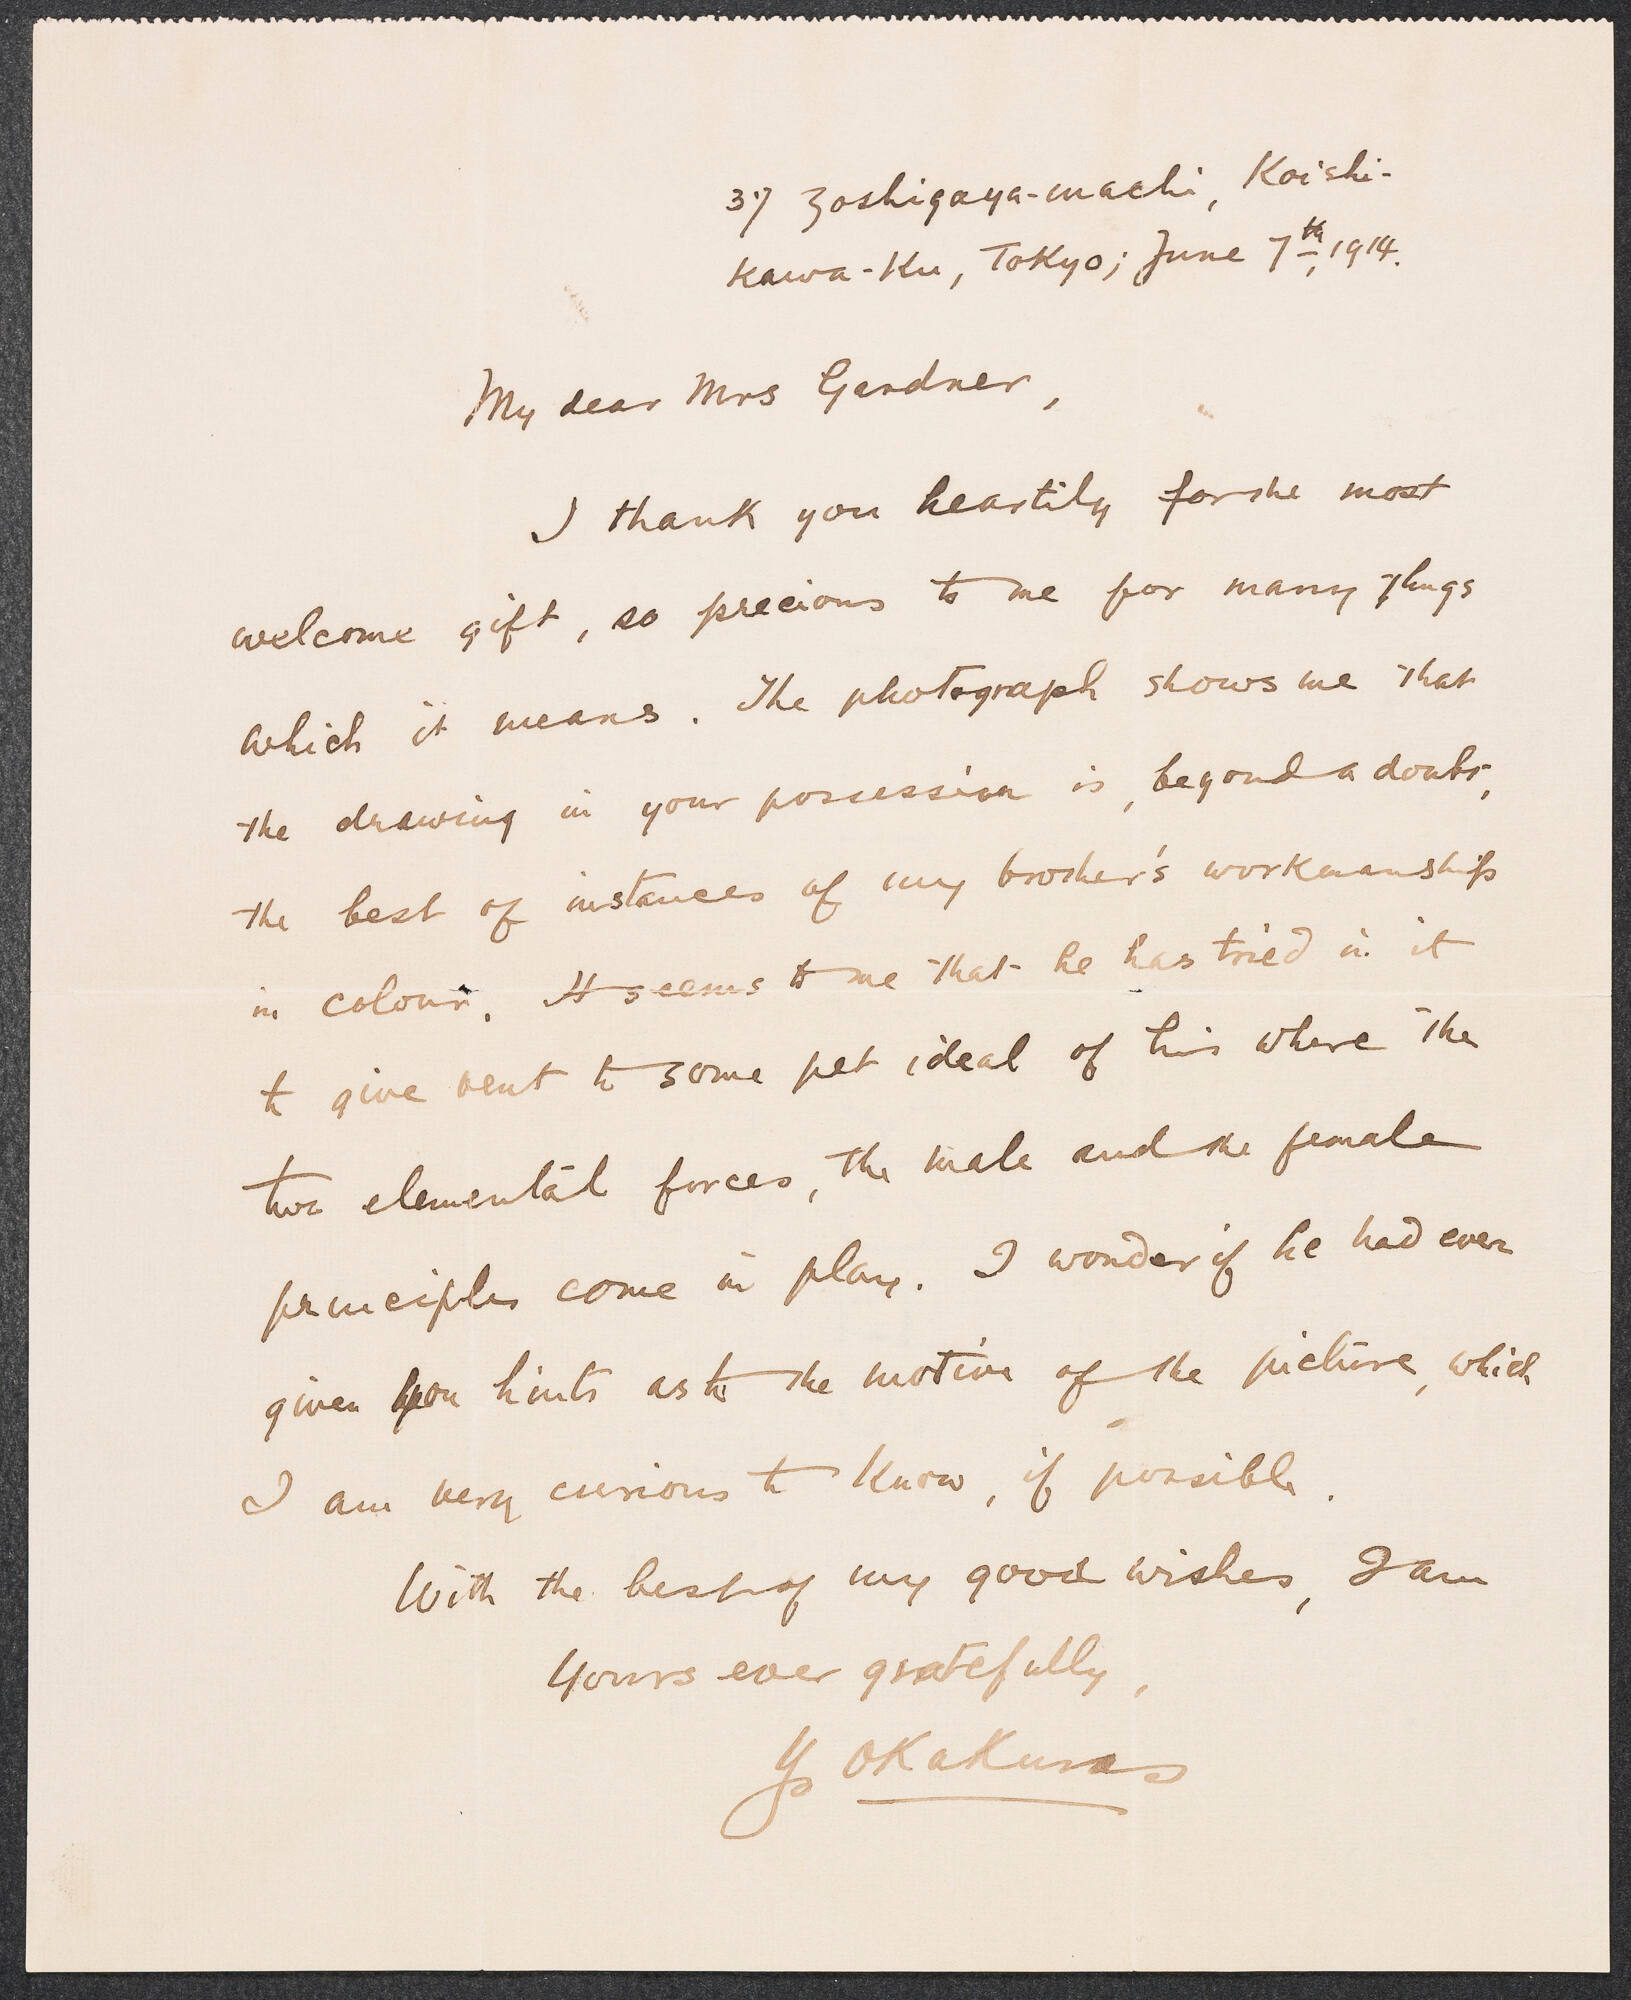 37 Zoshigaya-machi, Koishi-
Kawa-Ku, Tokyo; June 7th, 1914.
My dear Mrs Gardner,
I thank you heartily for the most
welcome gift, so precious to me for many things
which it means. The photograph shows me that
the drawing in your possession is, beyond a doubt,
the best of instances of my brother's workmanship
in colour. It seems to me that he has tried in it
to give vent to some pet ideal of his where the
two elemental forces, the male and the female
principles come in play. I wonder if he had ever
given you hints as to the motive of the picture, which
I am very curious to know, if possible.
With the best of my good wishes, I am
Yours ever gratefully,
Y Okakura